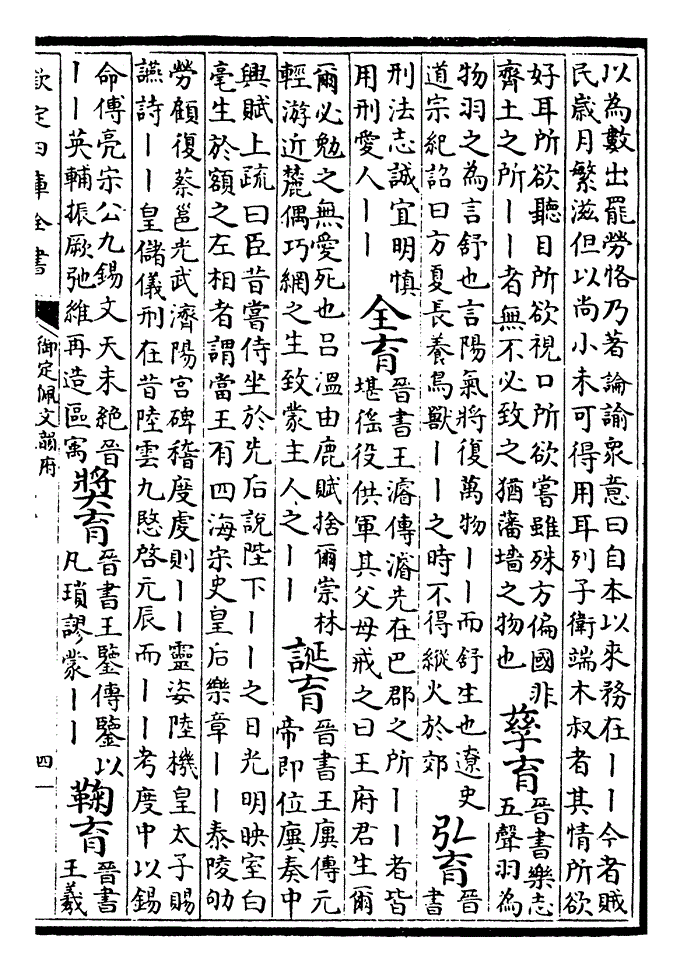 以為數出罷勞恪乃著論諭衆意曰自本以來務在丨丨今者賊
民歲月繁滋但以尚小未可得用耳列子衛端木叔者其情所欲
好耳所欲聽目所欲視口所欲嘗雖殊方偏國非
齊土之所丨丨者無不必致之猶藩墻之物也
孳育
晉書樂志
五聲羽為
物羽之為言舒也言陽氣將復萬物丨丨而舒生也遼史
道宗紀詔曰方夏長養鳥獸丨丨之時不得縱火於郊
弘育
晉
書
刑法志誠宜明慎
用刑愛人丨丨
全育
晉書王濬傳濬先在巴郡之所丨丨者皆
堪徭役供軍其父母戒之曰王府君生爾
爾必勉之無愛死也吕溫由鹿賦捨爾崇林
輕游近麓偶巧網之生致蒙主人之丨丨
誕育
晉書王廙傳元
帝即位廙奏中
興賦上疏曰臣昔嘗侍坐於先后說陛下丨丨之日光明映室白
毫生於額之左相者謂當王有四海宋史皇后樂章丨丨泰陵劬
勞顧復蔡邕光武濟陽宮碑稽度虔則丨丨靈姿陸機皇太子賜
讌詩丨丨皇儲儀刑在昔陸雲九愍啓元辰而丨丨考度中以錫
命傅亮宋公九錫文天未絶晉
丨丨英輔振厥弛維再造區寓
奬育
晉書王鑒傳鑒以
凡瑣謬蒙丨丨
鞠育
晉書
王羲
欽定四庫全書
御定佩文韻府
四一